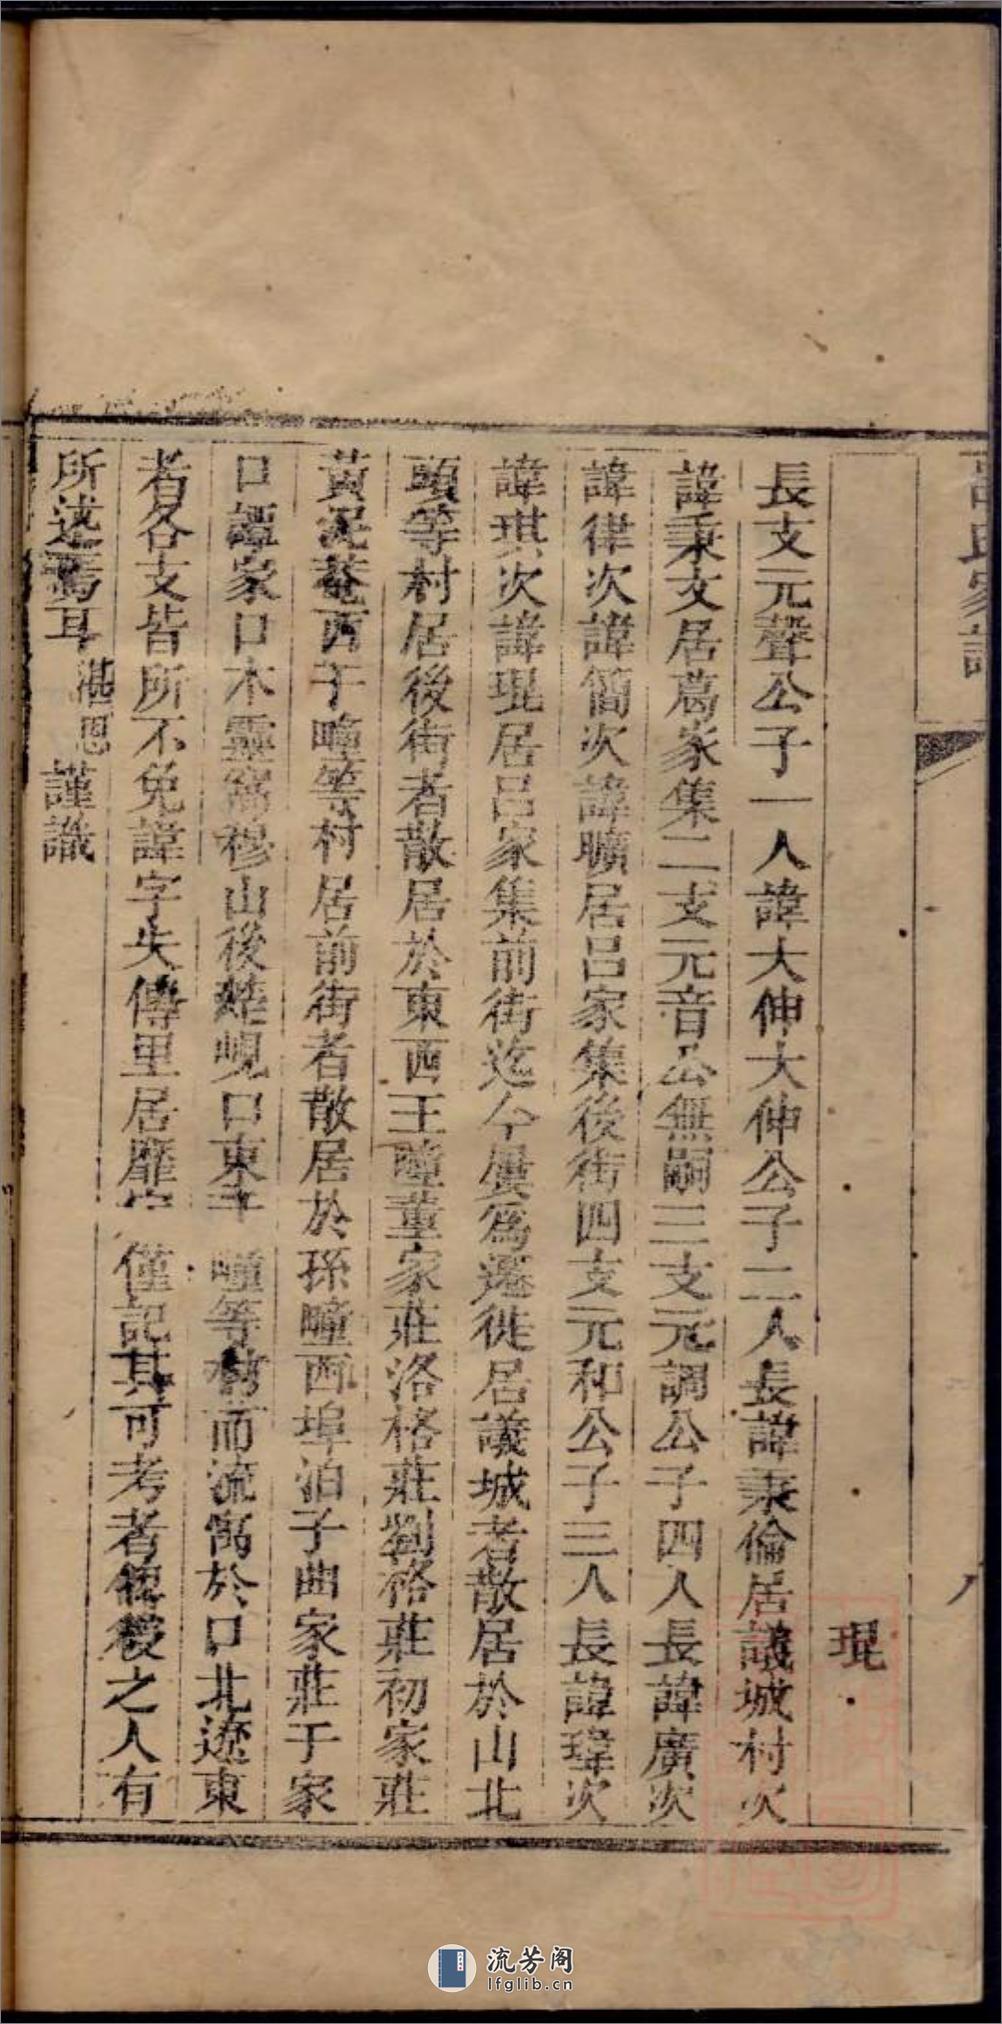 呂氏家譜
八
琨
長支元聲公子一人諱大伸大伸公子二人長諱秉倫居議城村次
諱秉文居葛家集二支元音公無嗣三支元調公子四人長諱廣次
諱律次諱簡次諱曠居呂家集後街四支元和公子三人長諱瑋次
諱琪次諱琨居呂家集前街迄今屢爲遷徙居議城者散居於山北
頭等村居後街者散居於東西王疃董家莊洛格莊劉格莊初家莊
黃泥菴西于疃等村居前街者散居於孫疃西埠泊子曲家莊于家
口譚家口木靈窩穆山後楚峴口東 疃等村而流寓於口北遼東
者各支皆所不免諱字失傳里居靡定僅記其可考者俾後之人有
所述焉耳湛恩謹識
流芳阁
lfglib.cn